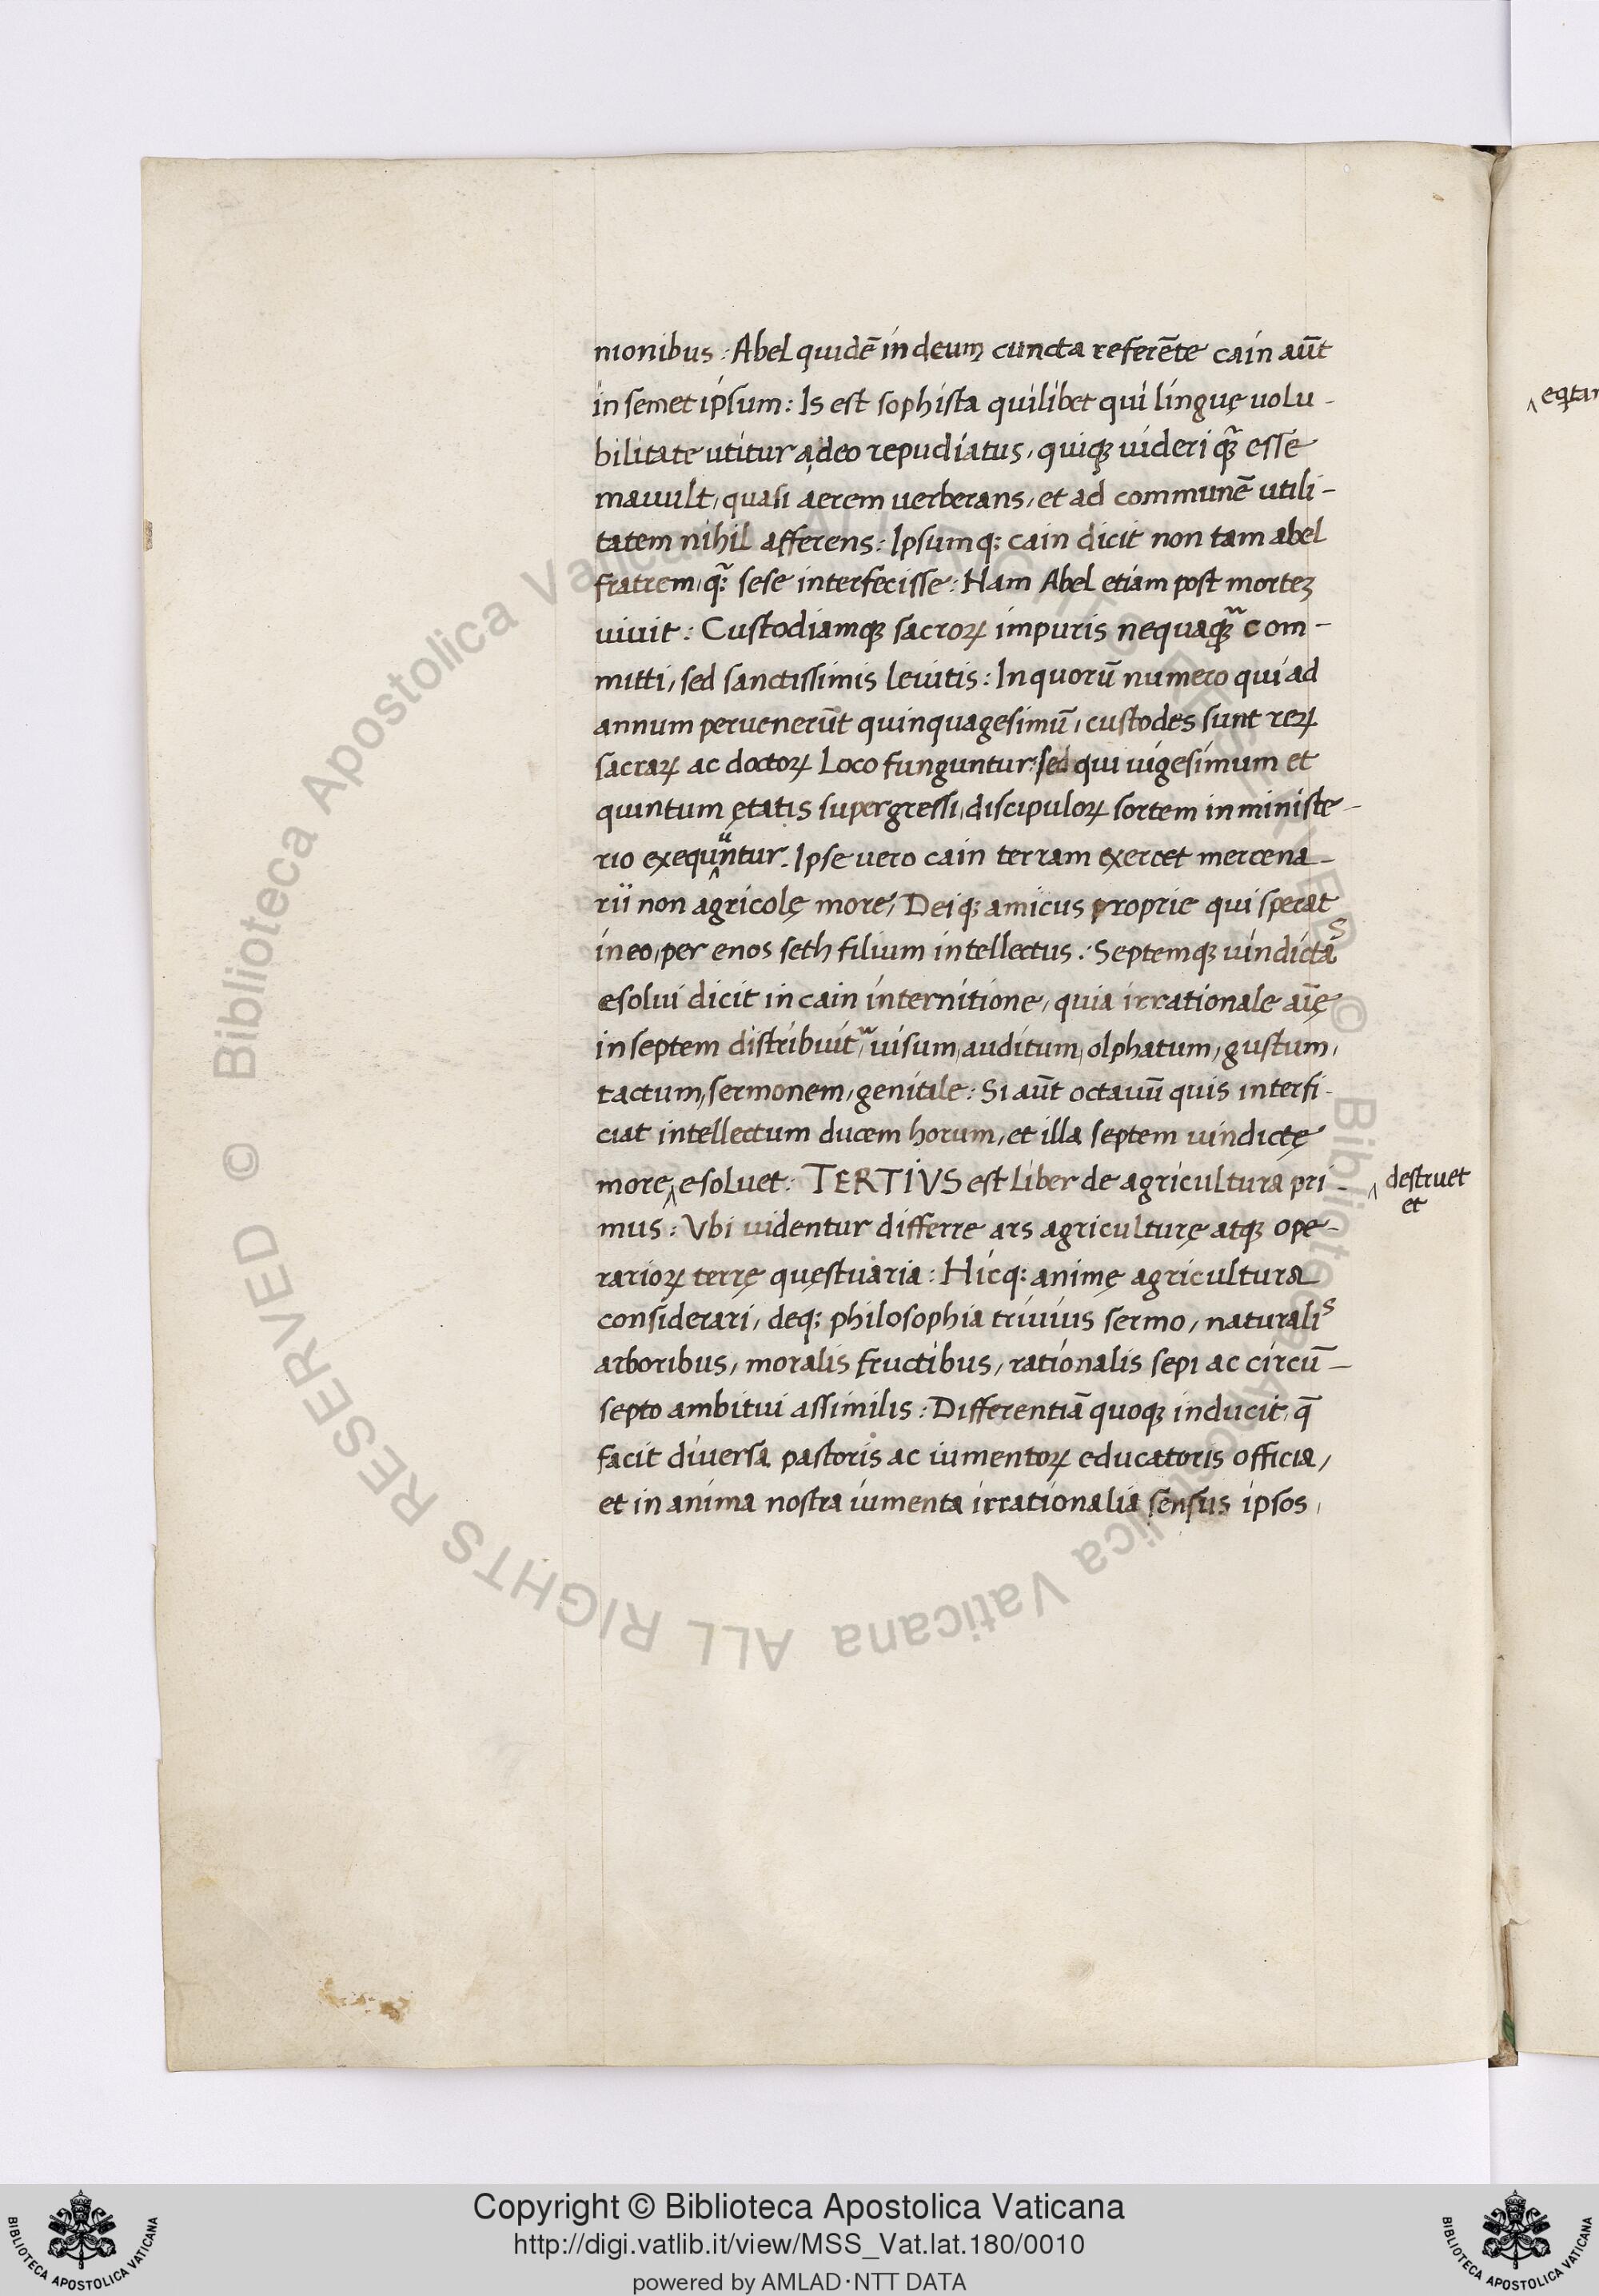 nionibus: Abel quidē in deum cuncta referēte cain aūt
in semet ipsum: Is est sophista quilibet qui linguę uolu-
bilitate utitur adeo repudiatus, quiqꝫ uideri q̃ esse
mauult, quasi aerem uerberans, et ad communē utili-
tatem nihil afferens: Ipsumqꝫ cain dicit non tam abel
fratrem, q̃ sese interfecisse: Nam Abel etiam post morteꝫ
uiuit: Custodiamqꝫ sacroꝝ impuris nequaq̃ com-
mitti, sed sanctissimis leuitis: In quorū numero qui ad
annum peruenerūt quinquagesimū, custodes sunt reꝝ
sacraꝝ ac doctoꝝ loco funguntur: sed qui uigesimum et
quintum ętatis supergressi, discipuloꝝ sortem in ministe-
rio exequūntur. Ipse uero cain terram exercet mercena-
rii non agricolę more, Deiqꝫ amicus proprie qui sperat
in eo, per enos seth filium intellectus: Septemqꝫ uindictas
esolui dicit in cain internitione, quia irrationale aīę
in septem distribuit᷒, uisum, auditum, olphatum, gustum,
tactum, sermonem, genitale: Si aūt octauū quis interfi-
ciat intellectum ducem horum, et illa septem uindictę
more ‸ esoluet: TERTIVS est liber de agricultura pri-
‸ destruet
et
mus: Vbi uidentur differre ars agriculturę atqꝫ ope-
rarioꝝ terrę quęstuaria: Hicqꝫ animę agricultura
considerari, deqꝫ philosophia triuius sermo, naturalis
arboribus, moralis fructibus, rationalis sepi ac circū-
septo ambitui assimilis: Differentiā quoqꝫ inducit, q̄
facit diuersa pastoris ac iumentoꝝ educatoris officia,
et in anima nostra iumenta irrationalia sensus ipsos,
© Biblioteca Apostolica Vaticana ALL RIGHTS RESERVED
© Biblioteca Apostolica Vaticana ALL RIGHTS RESERVED
Copyright © Biblioteca Apostolica Vaticana
http://digi.vatlib.it/view/MSS_Vat.lat.180/0010
powered by AMLAD·NTT DATA
BIBLIOTECA APOSTOLICA VATICANA
BIBLIOTECA APOSTOLICA VATICANA